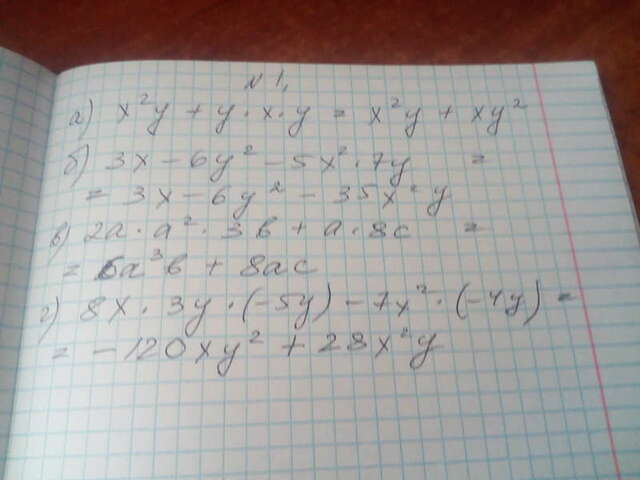 № 1.
а) x²y + y · x · y = x²y + xy²
б) 3x − 6y² − 5x² · 7y =
= 3x − 6y² − 35x²y
в) 2a · a² · 3b + a · 8c =
= 6a³b + 8ac
г) 8x · 3y · (−5y) − 7x² · (−4y) =
= −120xy² + 28x²y